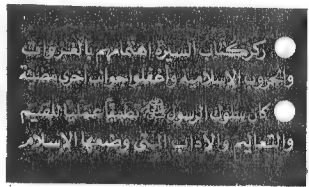 ركز كتاب السيرة اهتمامهم بالغزوات
والحروب الإسلامية وأغفلوا جوانب أخرى مضيئة
كان سلوك الرسول ﷺ تطبيقاً عملياً للقيم
والتعاليم والآداب التي وضعها الإسلام